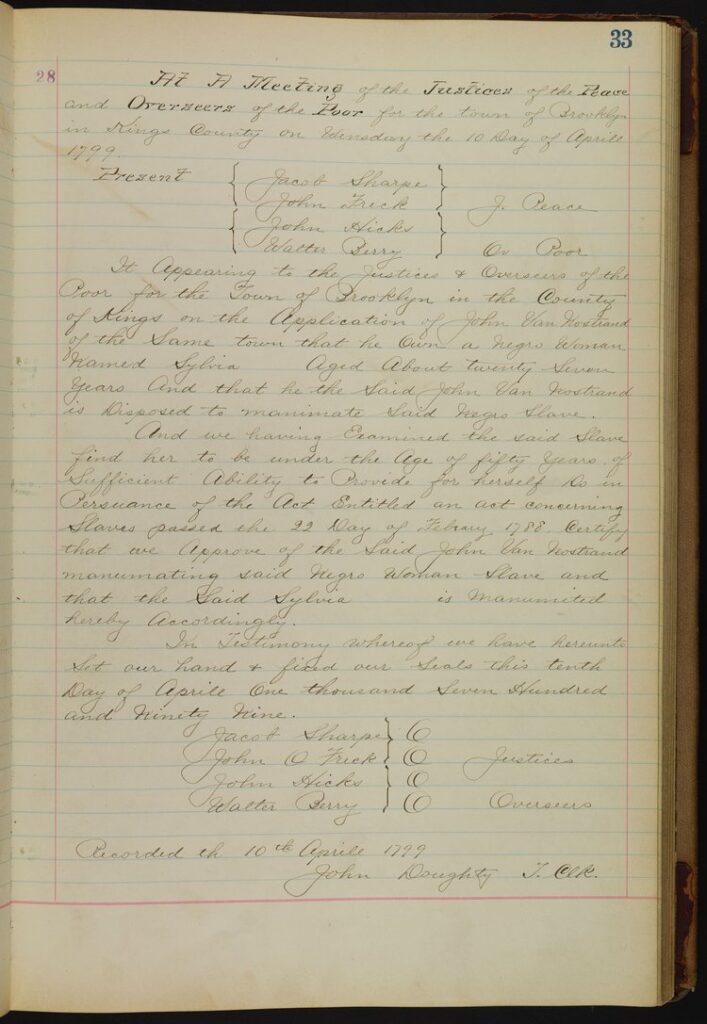 33
28
At A Meeting of the Justices of the Peace
and Overseers of the Poor for the town of Brooklyn
in Kings County on Wensday the 10 Day of Aprile
1799
Present Jacob Sharpe
John Frick J. Peace
John Hicks
Walter Berry Ov Poor
It Appearing to the Justices & Overseers of the
Poor for the Town of Brooklyn in the County
of Kings on the Application of John Van Nostrand
of the Same town that he Own a Negro Woman
Named Sylvia Aged About twenty Seven
Years And that he the Said John Van Nostrand
is Disposed to manumate Said Negro Slave.
And we having Examined the said Slave
find her to be under the Age of fifty Years. of
Sufficient Ability to Provide for herself Do in
Persuance of the Act Entitled an act concerning
Slaves passed the 22 Day of Febuary 1788. Certify
that we Approve of the Said John Van Nostrand
manumating said Negro Woman Slave and
that the Said Sylvia is Manumited
hereby Accordingly.
In Testimony whereof we have hereunto
Set our hand & fixed our Seals this tenth
Day of Aprile One thousand Seven Hundred
and Ninety Nine.
Jacob Sharpe
John O Frick Justices
John Hicks
Walter Berry Overseers
Recorded th 10th Aprile 1799
John Doughty T. Clk.